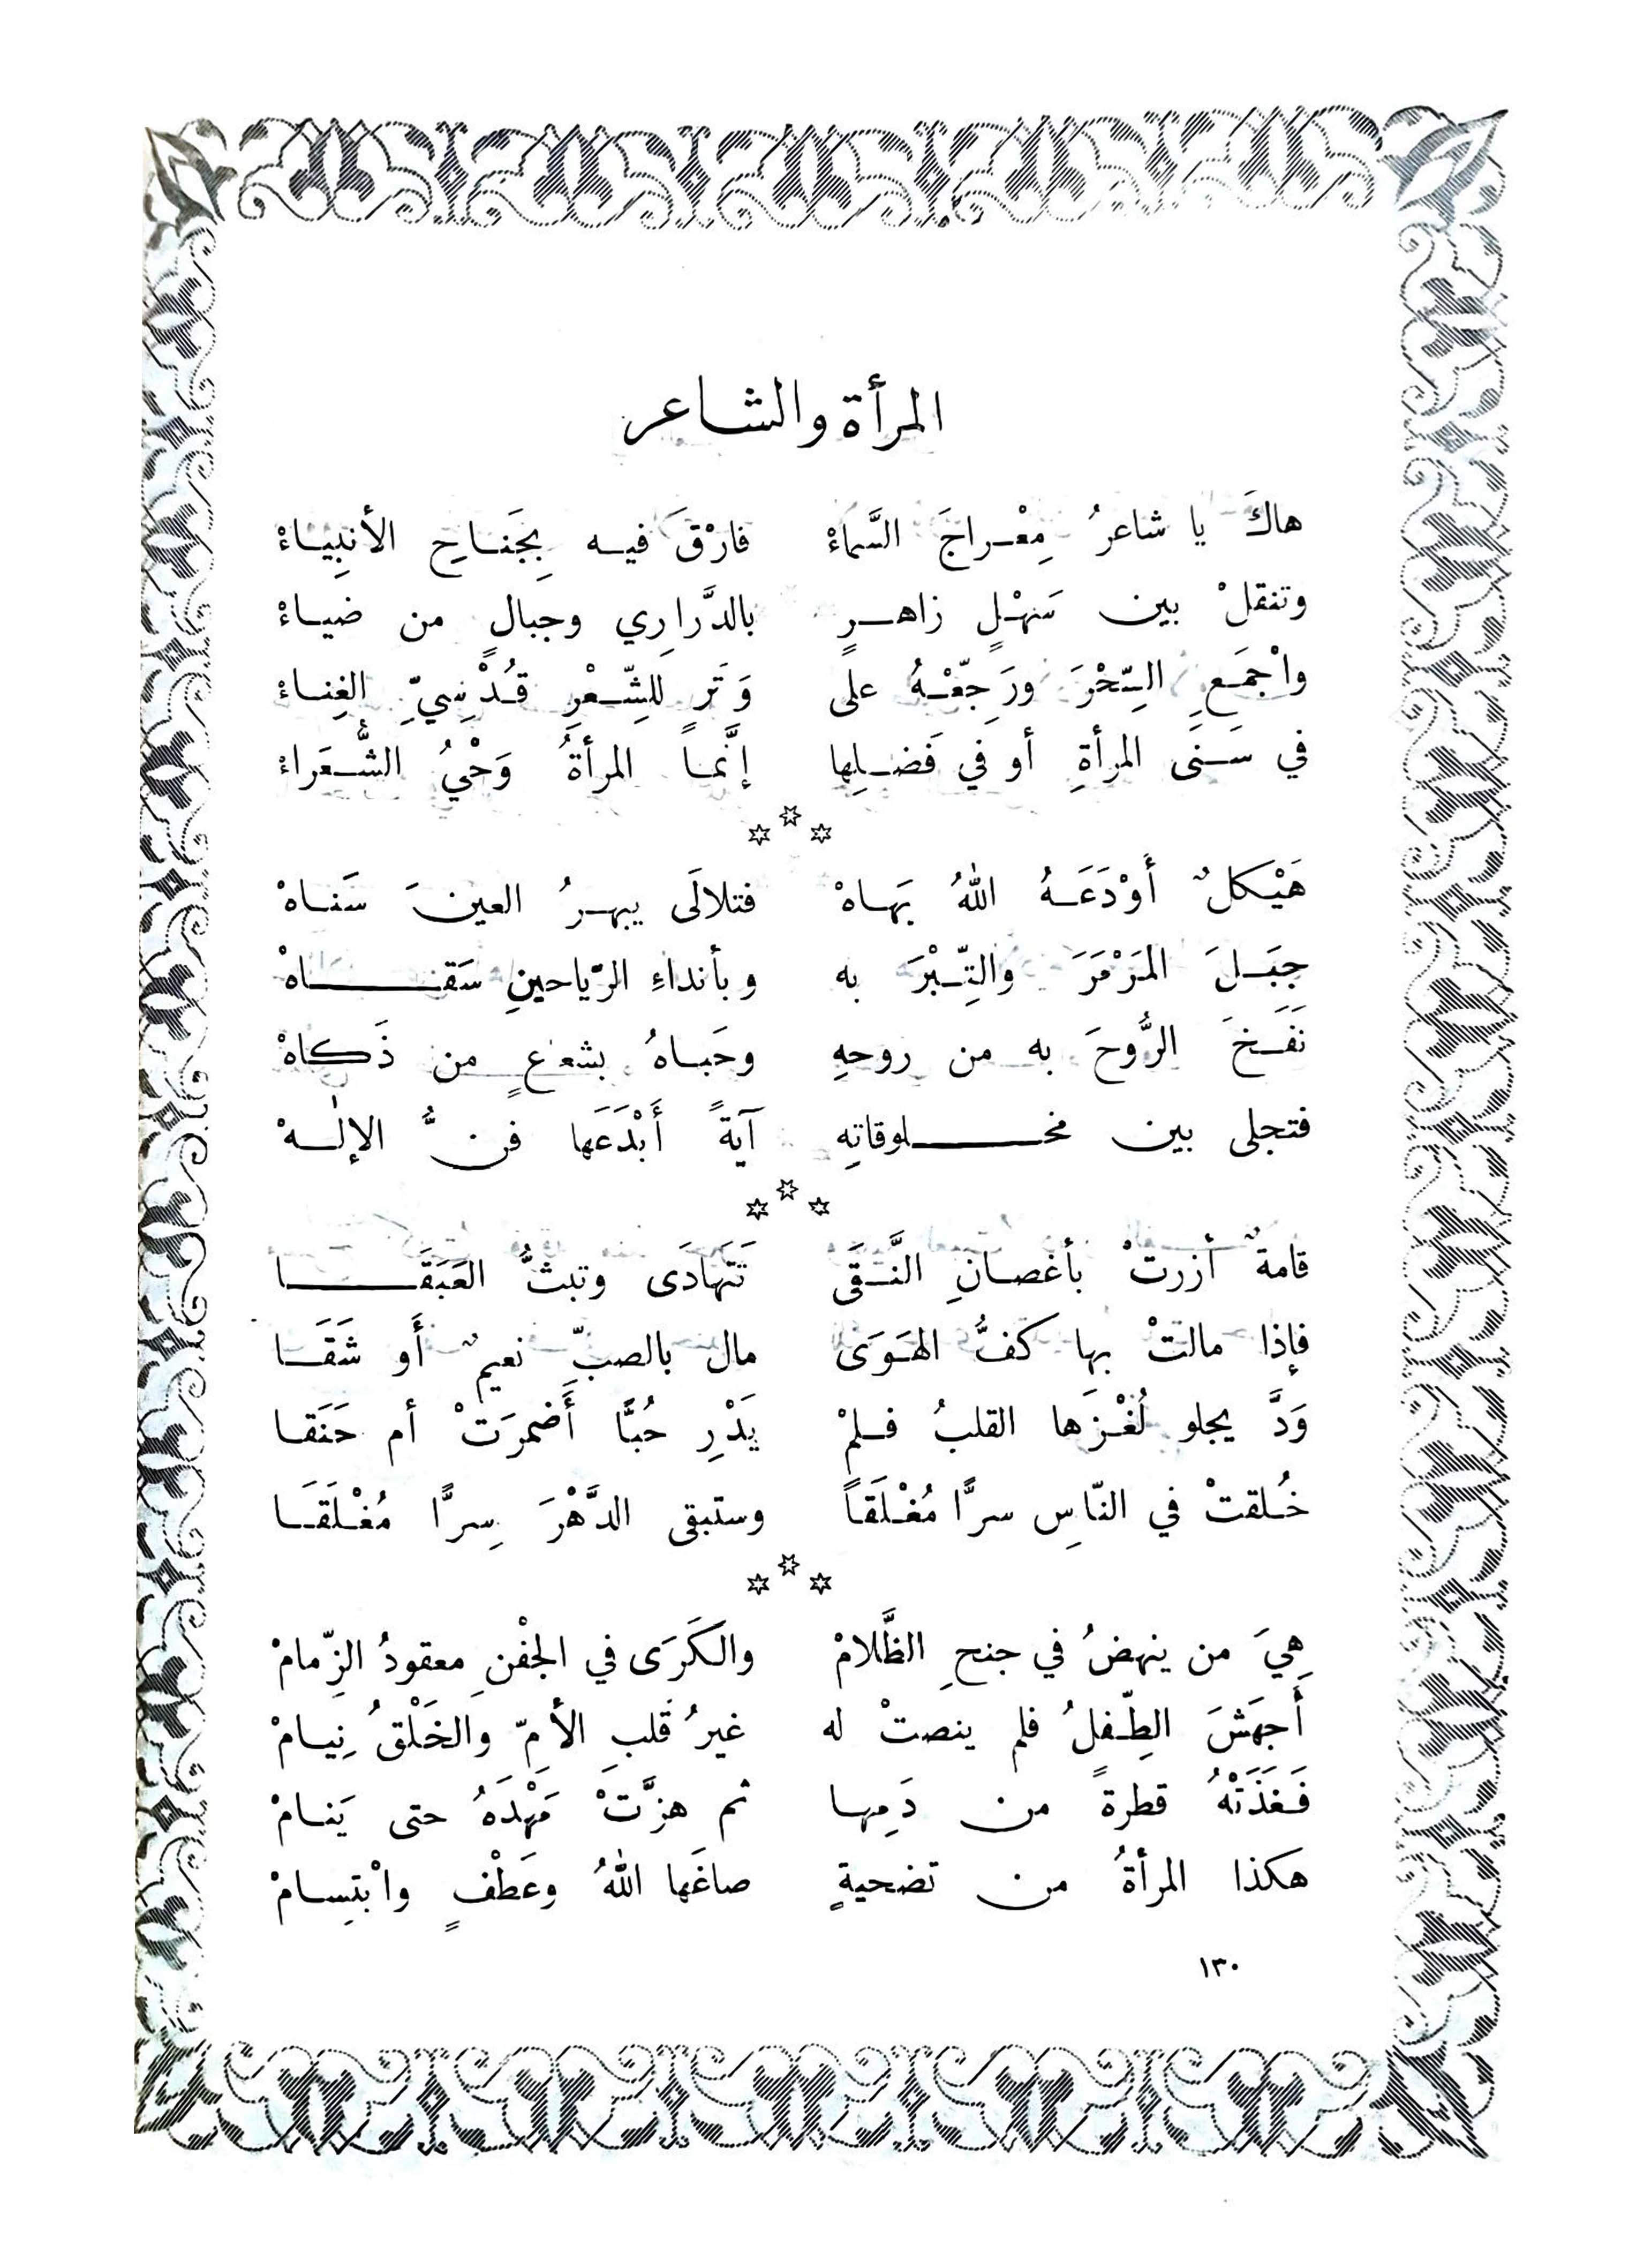 المرأة والشاعر
هاكَ يا شاعرُ مِعْراجَ السَّماءْ فارْقَ فيه بِجَناحِ الأنبِياءْ
وتنقلْ بين سَهْلٍ زاهرٍ بالدَّرارِي وجبالٍ من ضياءْ
واْجمَعِ السِّحْرَ ورَجِّعْهُ على وَتَرٍ للشِّعْرِ قُدْسِيِّ الغِناءْ
في سَنَى المرأةِ أو في فَضلِها إنَّماً المرأةُ وَحْيُ الشُّعَراءْ
☆ ☆ ☆
هَيْكلٌ أَوْدَعَهُ اللهُ بَهاهْ فتلالَى يبهرُ العينَ سَناهْ
جبَلَ المَرْمَرَ والتِّبْرَ به وبأنداءِ الرّياحينِ سَقاهْ
نَفَخَ الرُّوحَ به من روحهِ وحَباهُ بشعاعٍ من ذَكاهْ
فتجلى بين مخلوقاتِه آيةً أَبْدَعَها فنُّ الإلٰهْ
☆ ☆ ☆
قامةٌ أزرتْ بأغصانِ النَّقَى تَتَهادَى وتبثُّ العَبَقَا
فإذا مالتْ بها كفُّ الهَوَى مال بالصبِّ نعيمٌ أَو شَقَا
وَدَّ يجلو لُغْزَها القلبُ فلمْ يَدْرِ حُبًّا أَضمرَتْ أم حَنَقا
خُلقتْ في النّاسِ سرًّا مُغْلَقاً وستبقى الدَّهْرَ سِرًّا مُغْلَقَا
☆ ☆ ☆
هِيَ من ينهضُ في جنحِ الظَّلامْ والكَرَى في الجفْنِ معقودُ الزِّمامْ
أَجهَشَ الطِّفلُ فلم ينصتْ له غيرُ قَلبِ الأمّ والخَلْقُ نِيامْ
فَغَذَتْهُ قطرةً من دَمِها ثم هزَّتْ مَهْدَهُ حتى يَنامْ
هكذا المرأةُ من تضحيةٍ صاغَها اللهُ وعَطْفٍ واْبتِسامْ
١٣٠